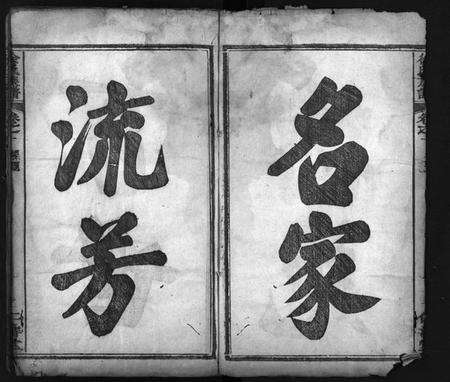 名家
流芳